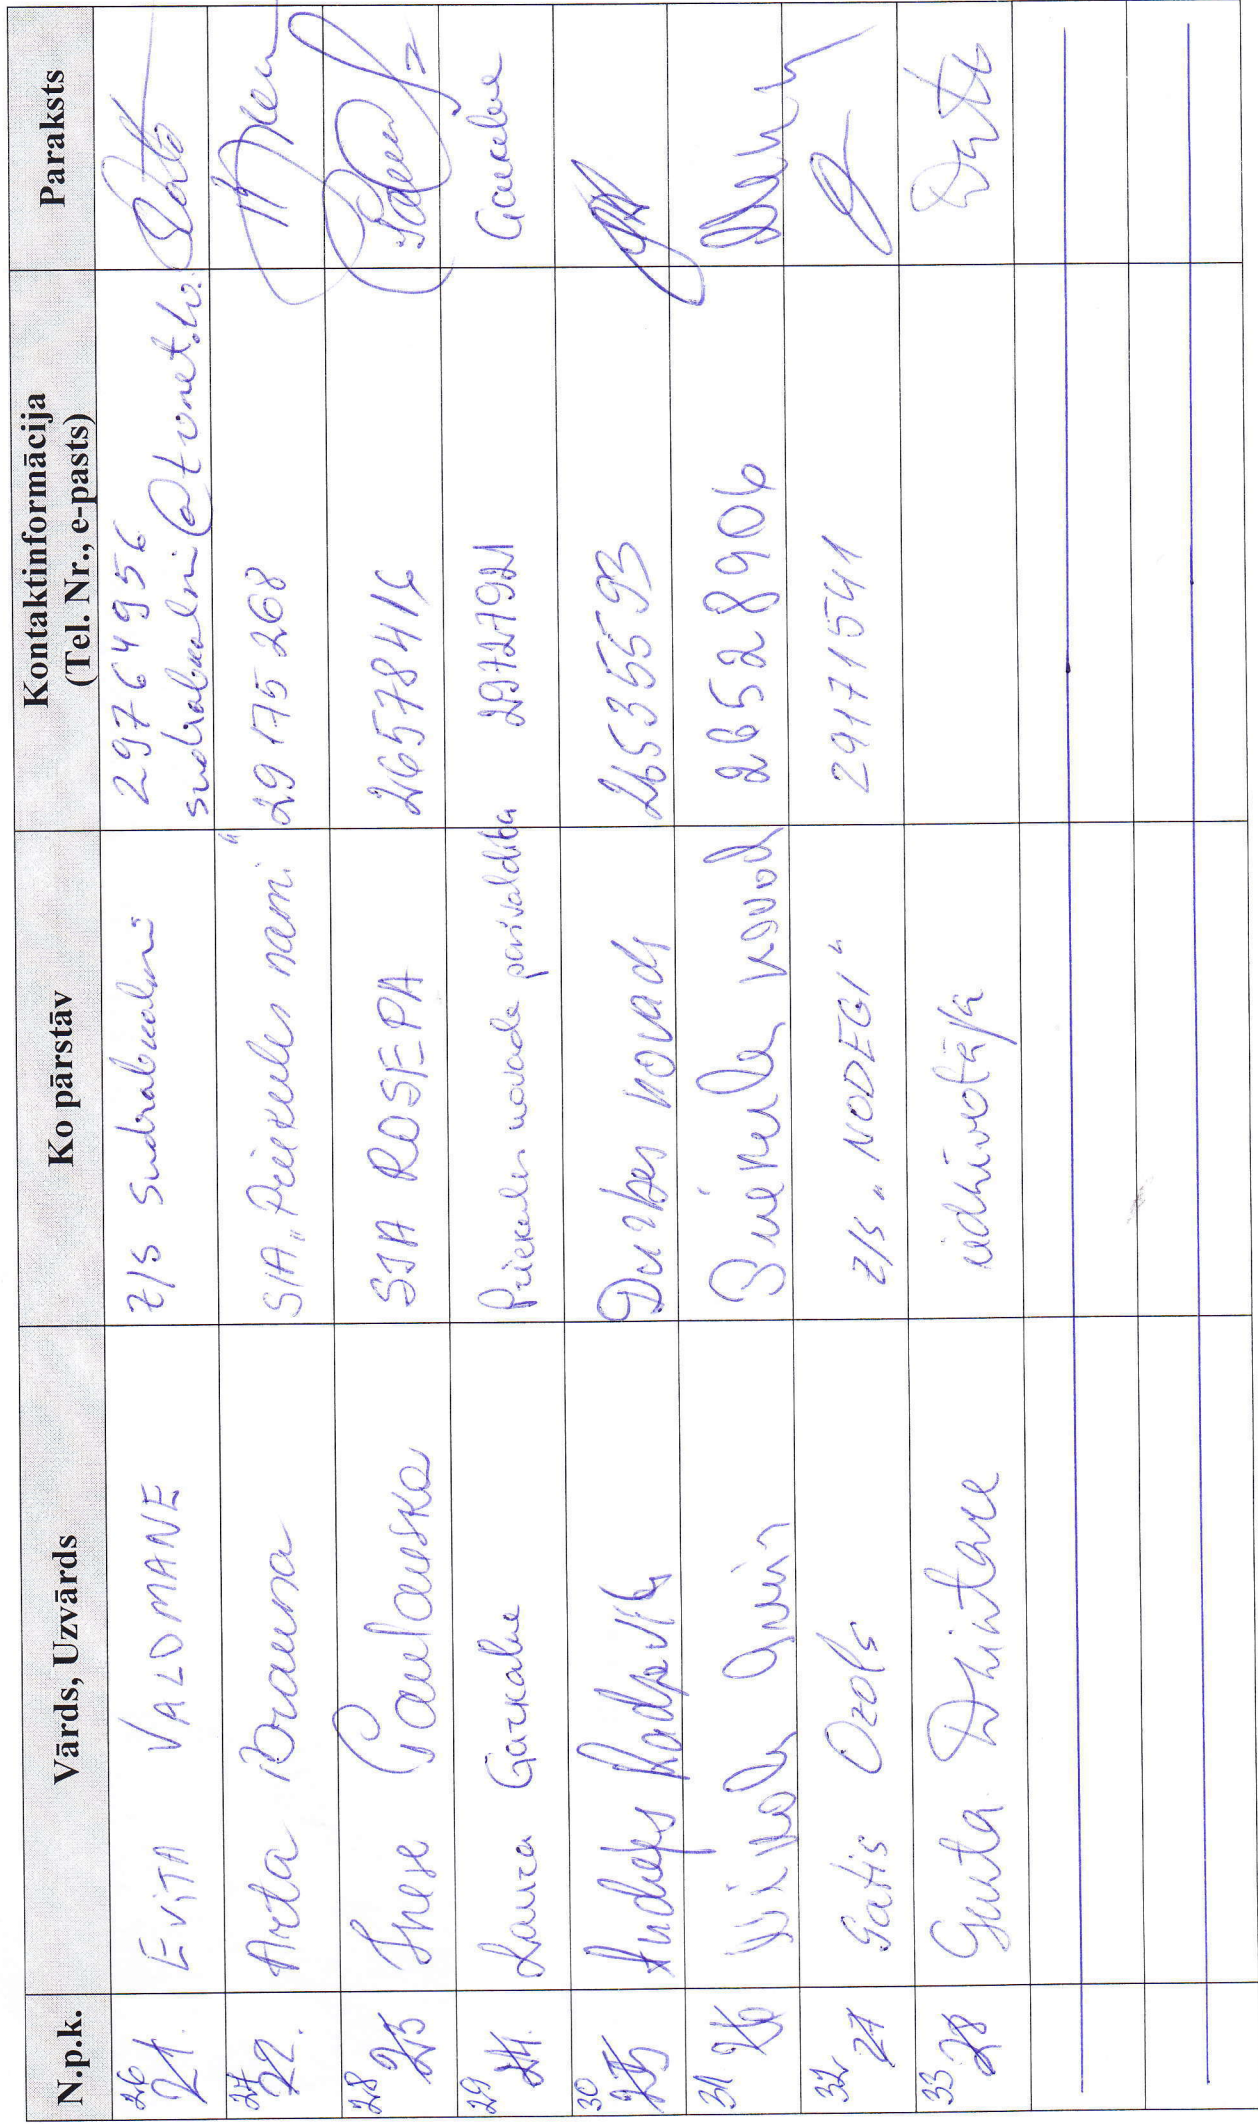 N.p.k. Vārds, Uzvārds Ko pārstāv Kontaktinformācija (Tel. Nr., e-pasts) Paraksts
26 21. EVITA VALDMANE Z/S Sudrabkalni 29764956
sudrabkalni@tvnet.lv.
27 22. Arta Brauna SIA „Priekules nami" 29175268
28 23 Inese Paulauska SIA ROSEPA 26578416
29 24. Laura Garkalne Priekules novada pašvaldība 29727921
30 25 Andrejs Radzevičs Durbes novads 26535593
31 26 Priekules novads 26528906
32 27 Gatis Ozols Z/S „NODEGI" 29171541
33 28 Gunta Dzintare iedzīvotāja